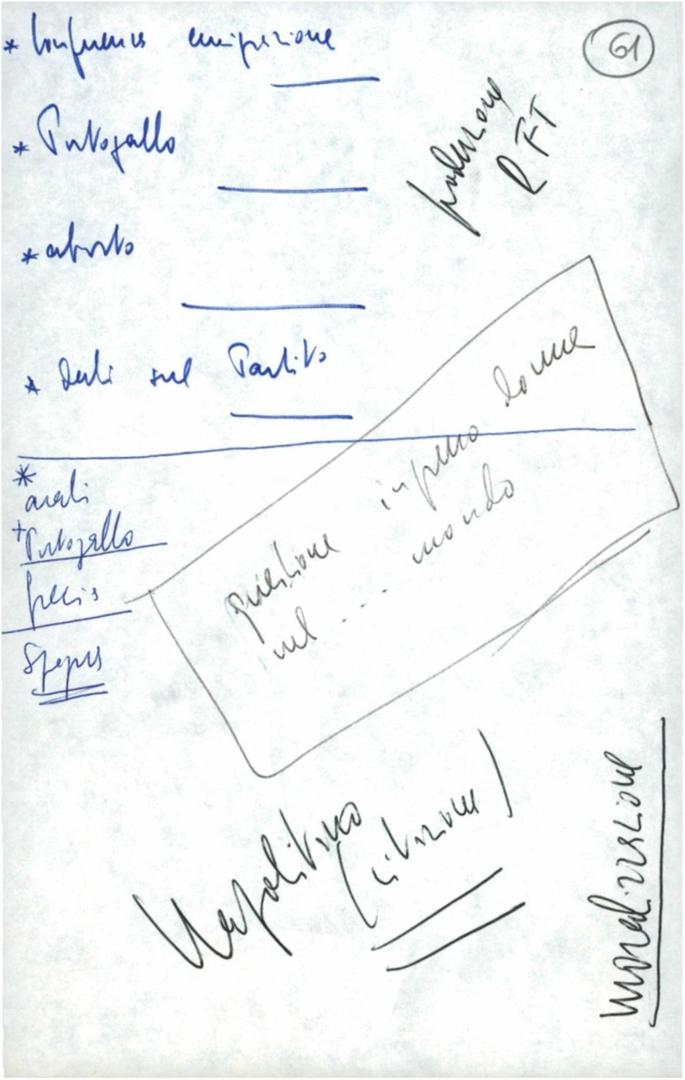 61
* Conferenza emigrazione
* Portogallo
* aborto
* dati sul Partito
*
arabi
+ Portogallo
Grecia
Spagna
RFT
questione impegno donne
nel ... mondo
Napolitano
(citazione)
moralizzazione